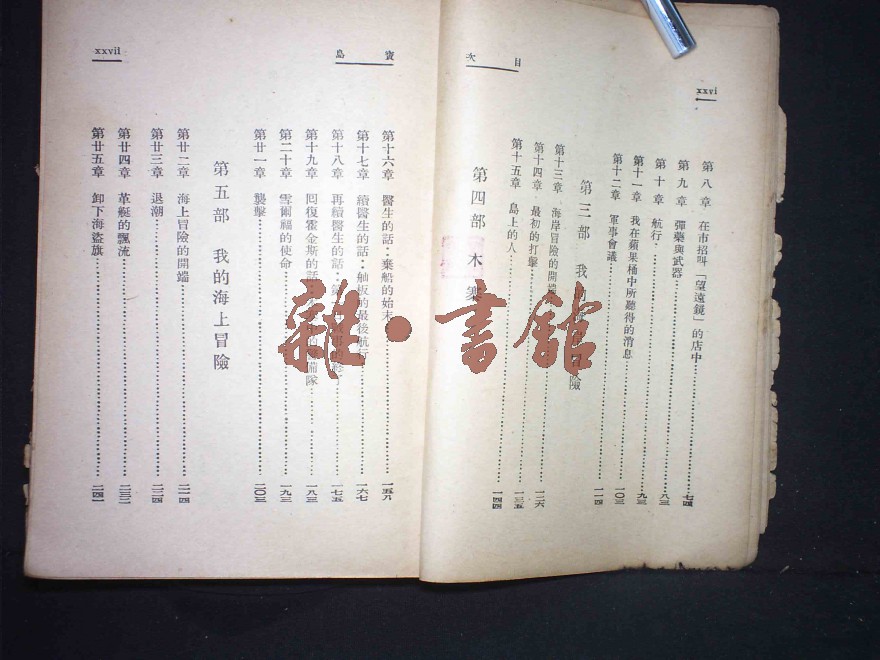 xxvi
目次
第八章 在市招叫「望遠鏡」的店中 七四
第九章 彈藥與武器 八三
第十章 航行 九三
第十一章 我在蘋果桶中所聽得的消息 一〇三
第十二章 軍事會議 一一四
第三部 我的 險
第十三章 海岸冒險的開端
第十四章 最初的打擊 一二六
第十五章 島上的人 一三五
第四部 木寨 一四四
寶島
xxvii
第十六章 醫生的話:棄船的始末 一五八
第十七章 續醫生的話:舢板的最後航行 一六七
第十八章 再續醫生的話:第 一七五
第十九章 回復霍金斯的話: 備隊 一八三
第二十章 雪爾福的使命 一九三
第廿一章 襲擊 二〇三
第五部 我的海上冒險
第廿二章 海上冒險的開端 二一四
第廿三章 退潮 二二四
第廿四章 革艇的飄流 二三二
第廿五章 卸下海盜旗 二四一
雜·書館